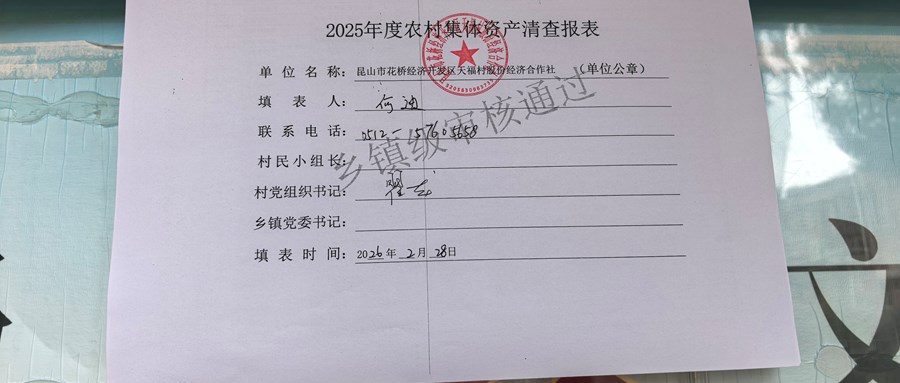 2025年度农村集体资产清查报表
单位名称：昆山市花桥经济开发区天福村股份经济合作社（单位公章）
填表人：何迪
联系电话：0512-157605658
村民小组长：
村党组织书记：
乡镇党委书记：
填表时间：2026年2月28日
乡镇级审核通过